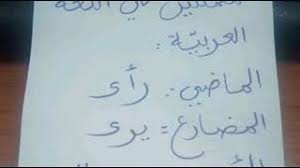 في اللغة
العربيّة :
الماضي : رأى
المضارع = يرى